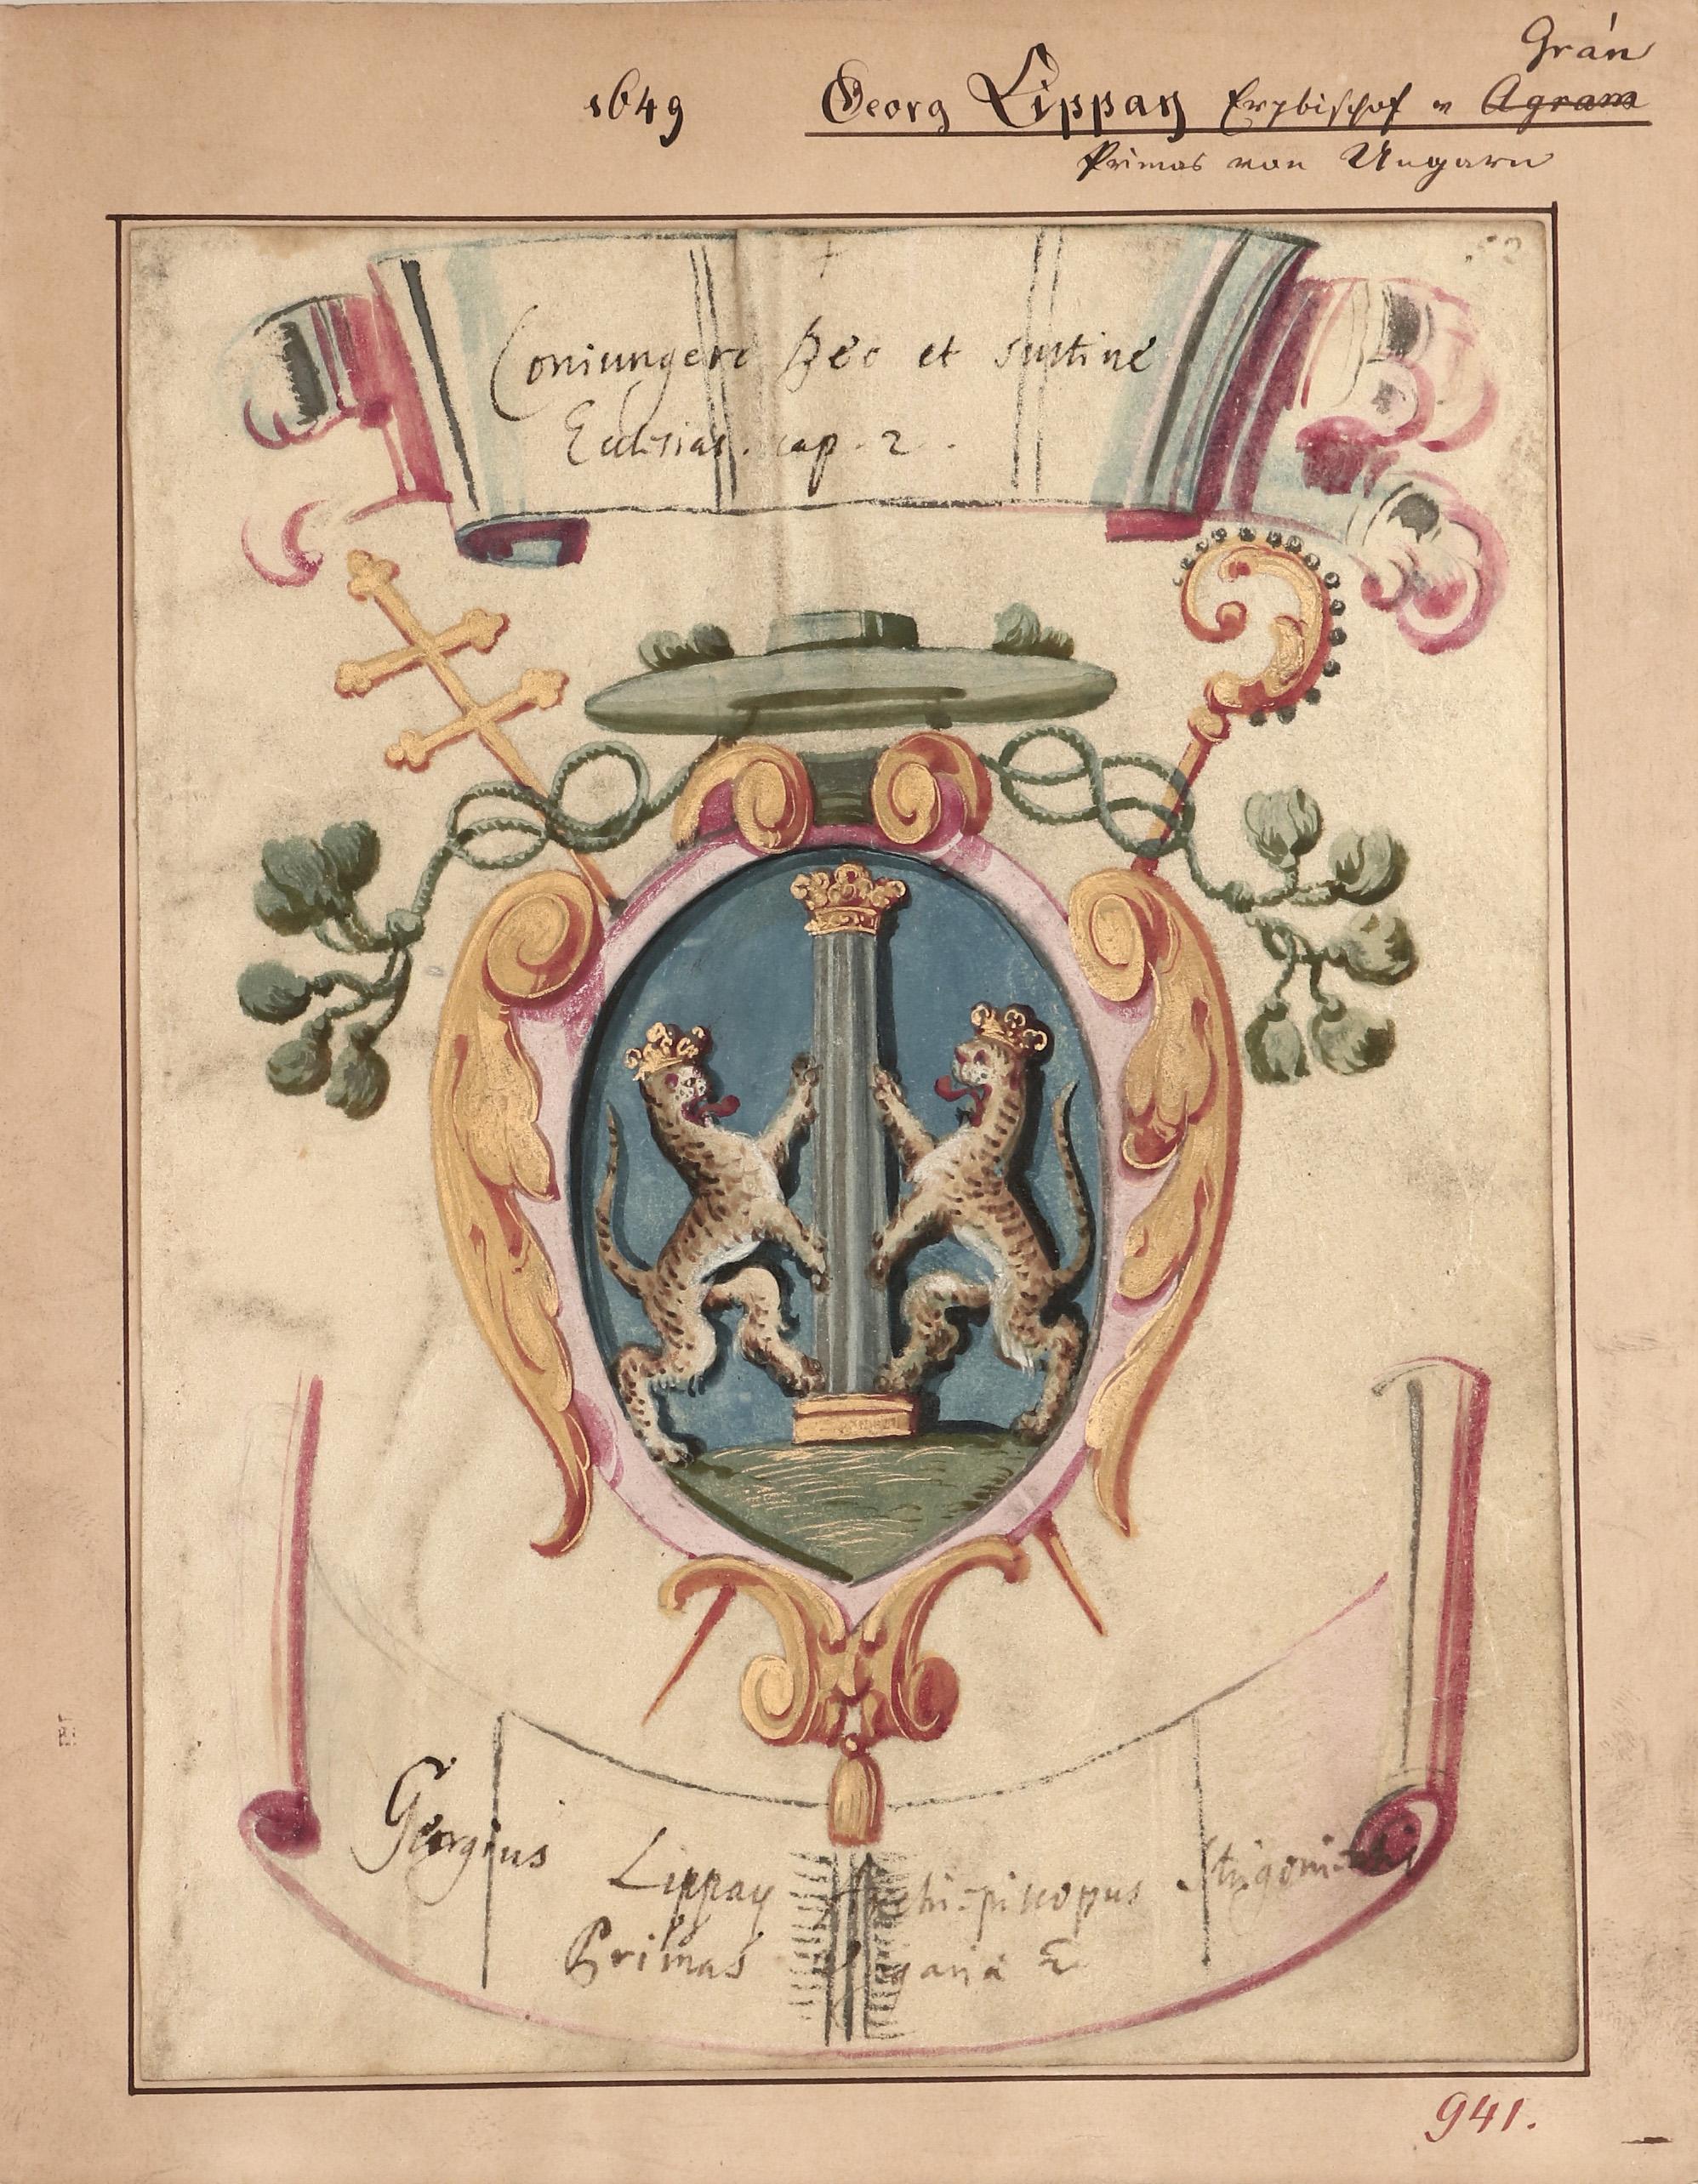 Grán
1649 Georg Lippay Erzbischof v Agram
Primas von Ungarn
Coniungere Deo et sustine
Ecclesias. cap. 2.
Georgius Lippay Archiepiscopus Strigoni
Primas
941.